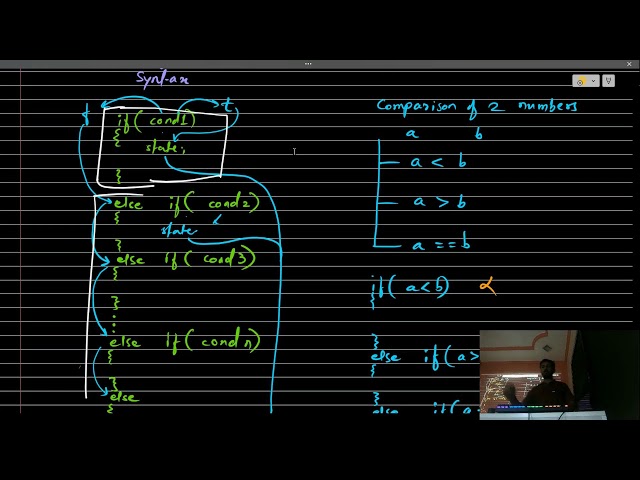 Syntax
f
t
if( cond1)
{
state;
}
else if( cond2)
{
state
}
else if( cond3)
{
}
:
else if( cond n)
{
}
else
{
Comparison of 2 numbers
a b
a < b
a > b
a == b
if( a<b) α
{
}
else if( a>
{
}
else if( a